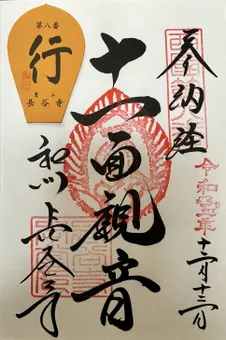 奉納経
令和
年
十二月十三日
十一面觀音
和州
長谷寺
第八番
行
豊山
長谷寺